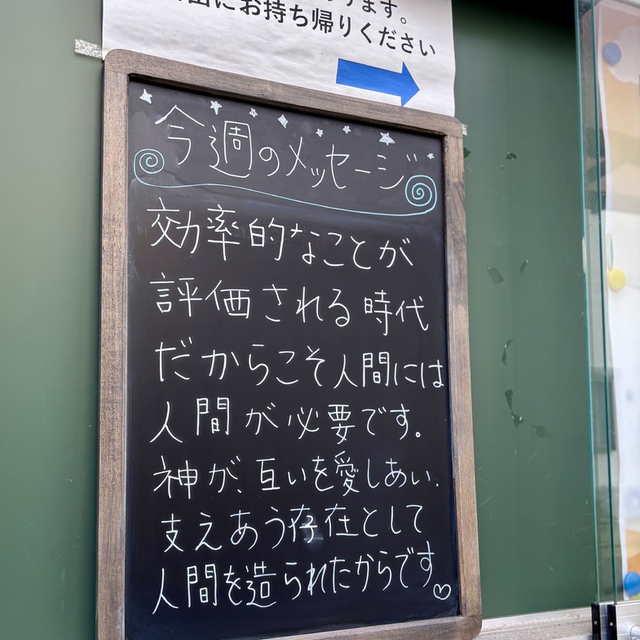 にお持ち帰りください
今週のメッセージ
効率的なことが
評価される時代
だからこそ人間には
人間が必要です。
神が、互いを愛しあい、
支えあう存在として
人間を造られたからです